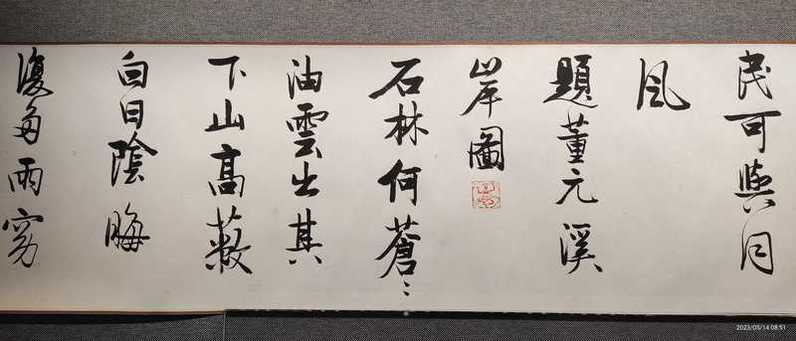 民可與同
風
題董元溪
岸圖
石林何蒼〻
油雲出其
下山高蔽
白日陰晦
復多雨窈
2023/05/14 08:51